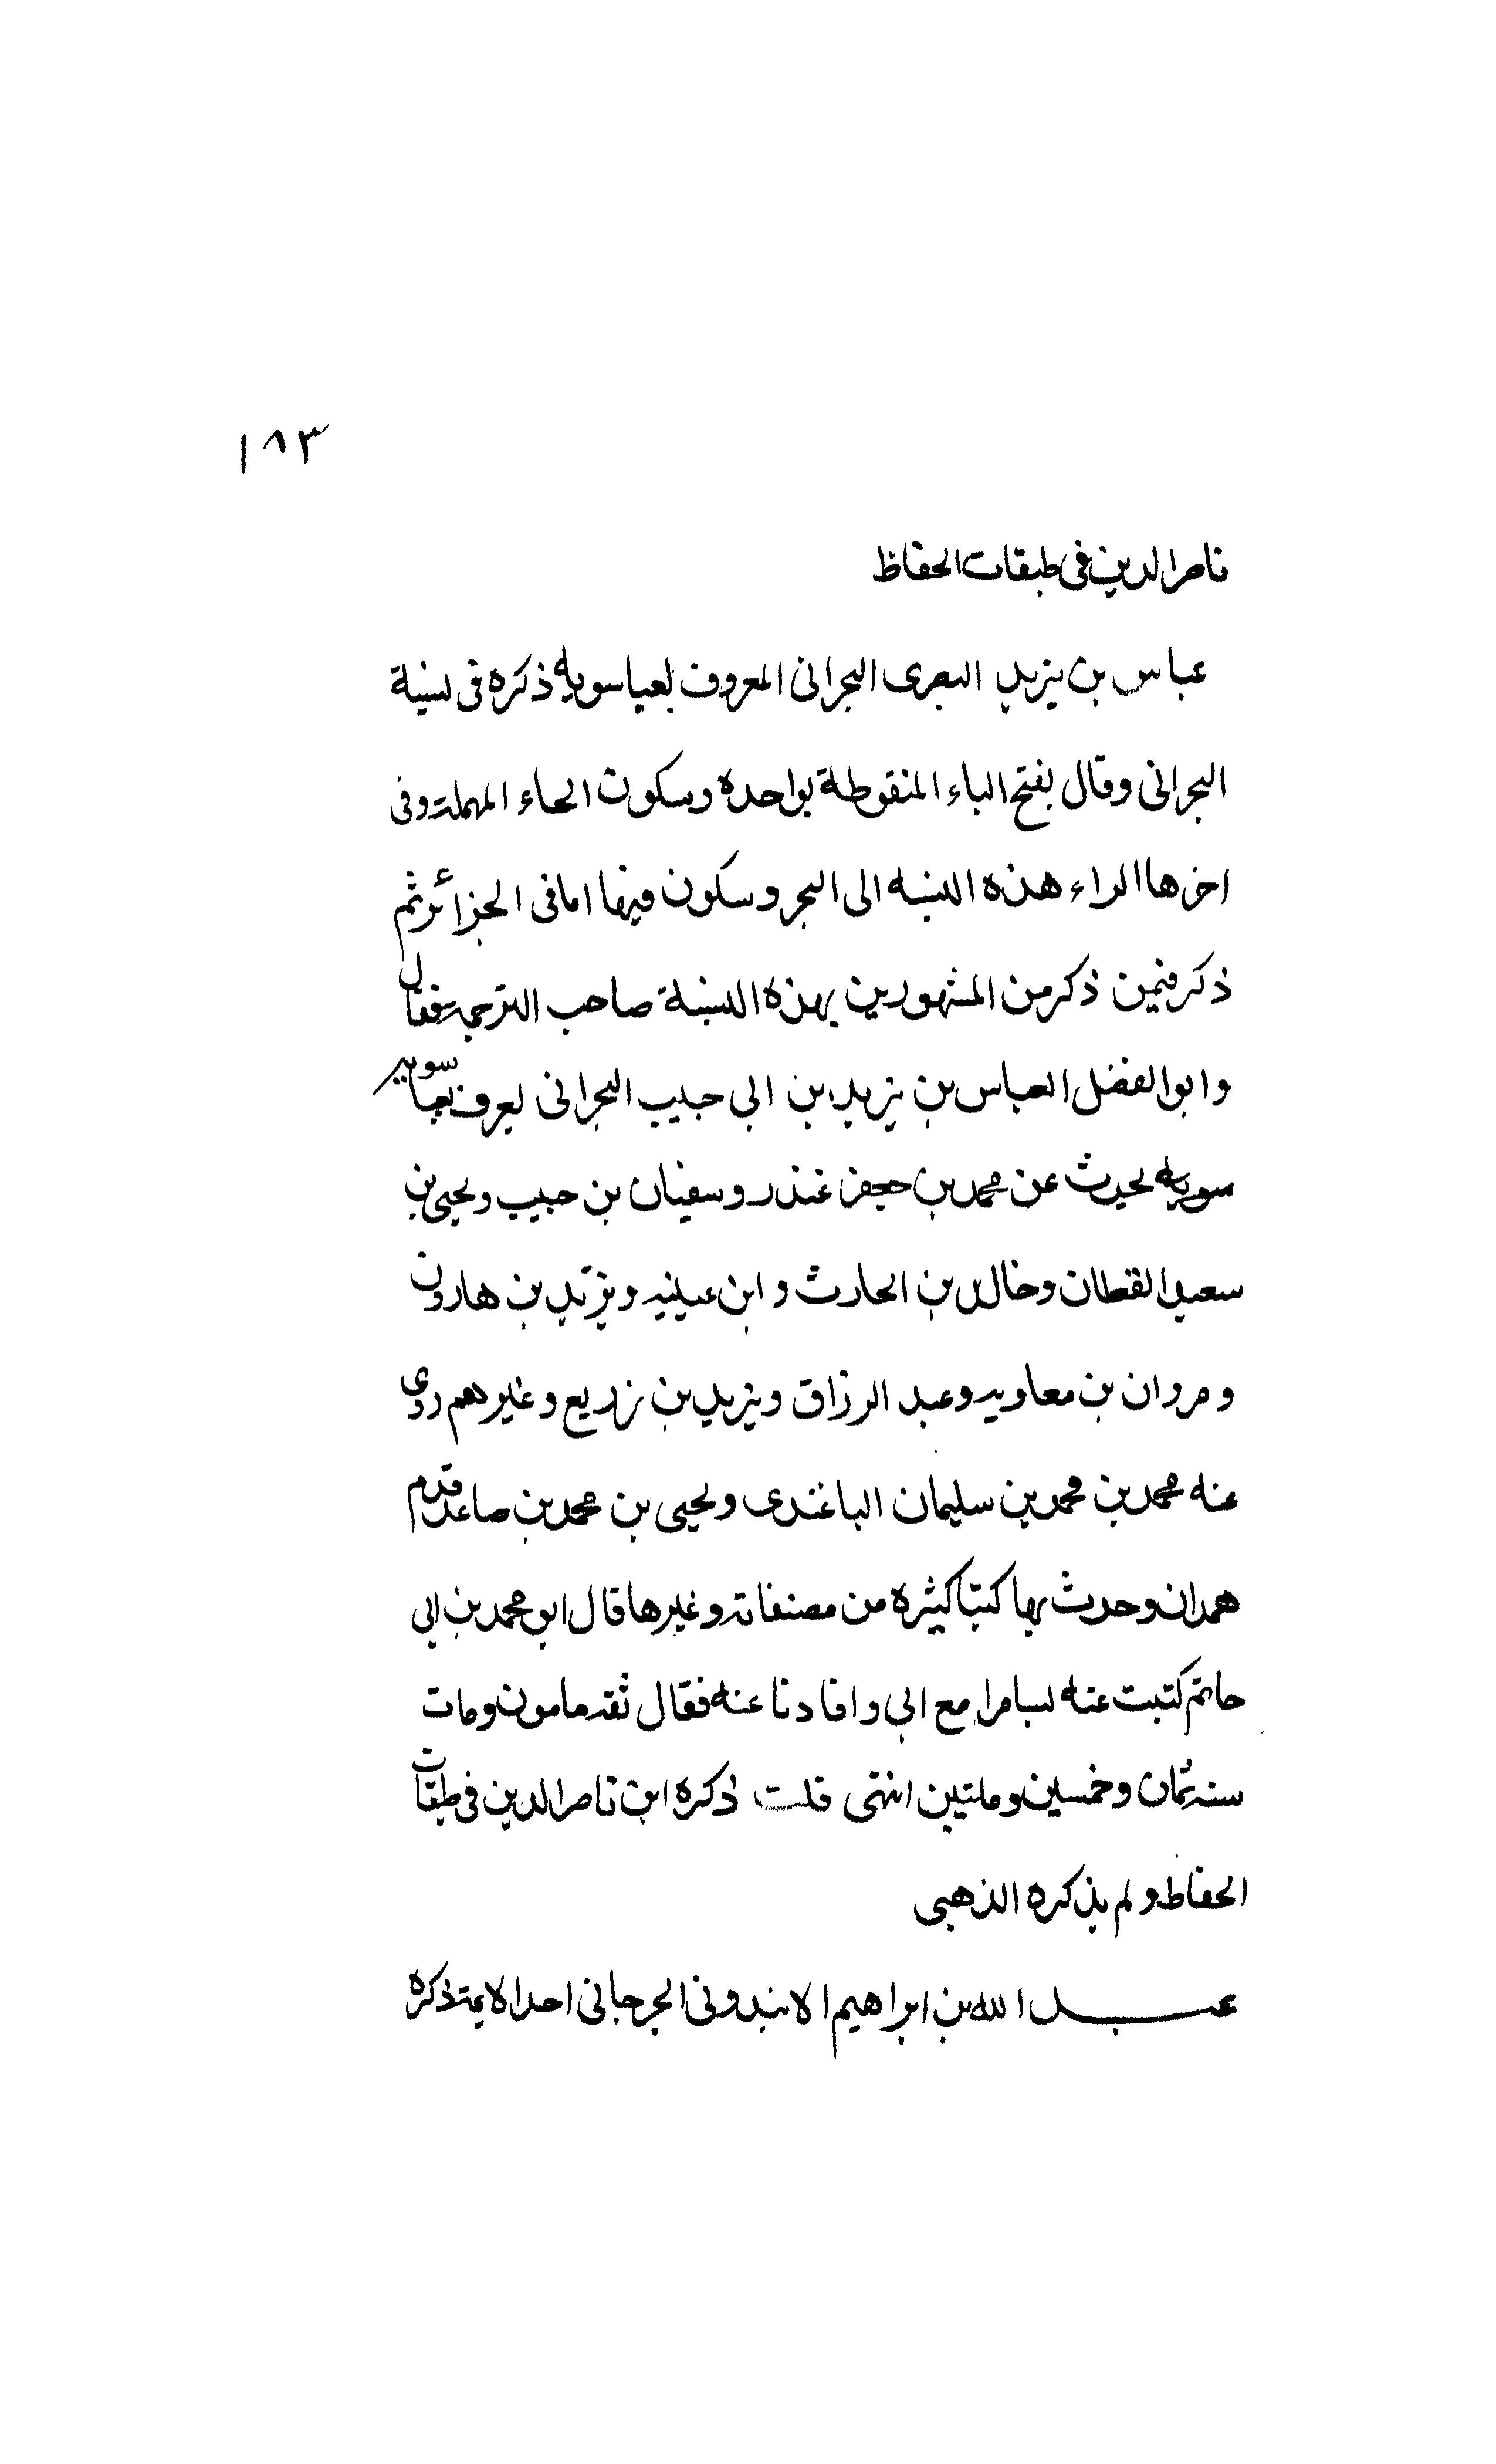 ١٨٣
ناصر الدين فى طبقات الحفاظ
عباس بن يزيد البصرى البحرانى المعروف بعباسويه ذكره فى نسبة
البحرانى وقال بفتح الباء المنقوطة بواحده وسكون الحاء المهملة وفى
اخرها الراء هذه النسبه الى البحر وسكون فيها اما فى الجزائر ثم
ذكر فيمن ذكر من المشهورين بهذه النسبة صاحب الترجمة فقال
وابو الفضل العباس بن يزيد بن ابى حبيب البحرانى يعرف بعباسويه
سويه يحدث عن محمد بن جعفر غندر وسفيان بن حبيب ويحيى بن
سعيد القطان وخالد بن الحارث وابن عيينه ويزيد بن هارون
ومروان بن معاويه وعبد الرزاق ويزيد بن زريع وغيرهم روى
عنه محمد بن محمد بن سليمان الباغندى ويحيى بن محمد بن صاعد قدم
همدان وحدث بها كتبا كثيره من مصنفاته وغيرها قال ابو محمد بن ابى
حاتم كتبت عنه بسامرا مع ابى وافادنا عنه فقال ثقه مامون ومات
سنه ثمان وخمسين ومايتين انتهى قلت ذكره ابن ناصر الدين فى طبقات
الحفاظ ولم يذكره الذهبى
عبد الله بن ابراهيم الابندونى الجرجانى احد الايمة ذكره